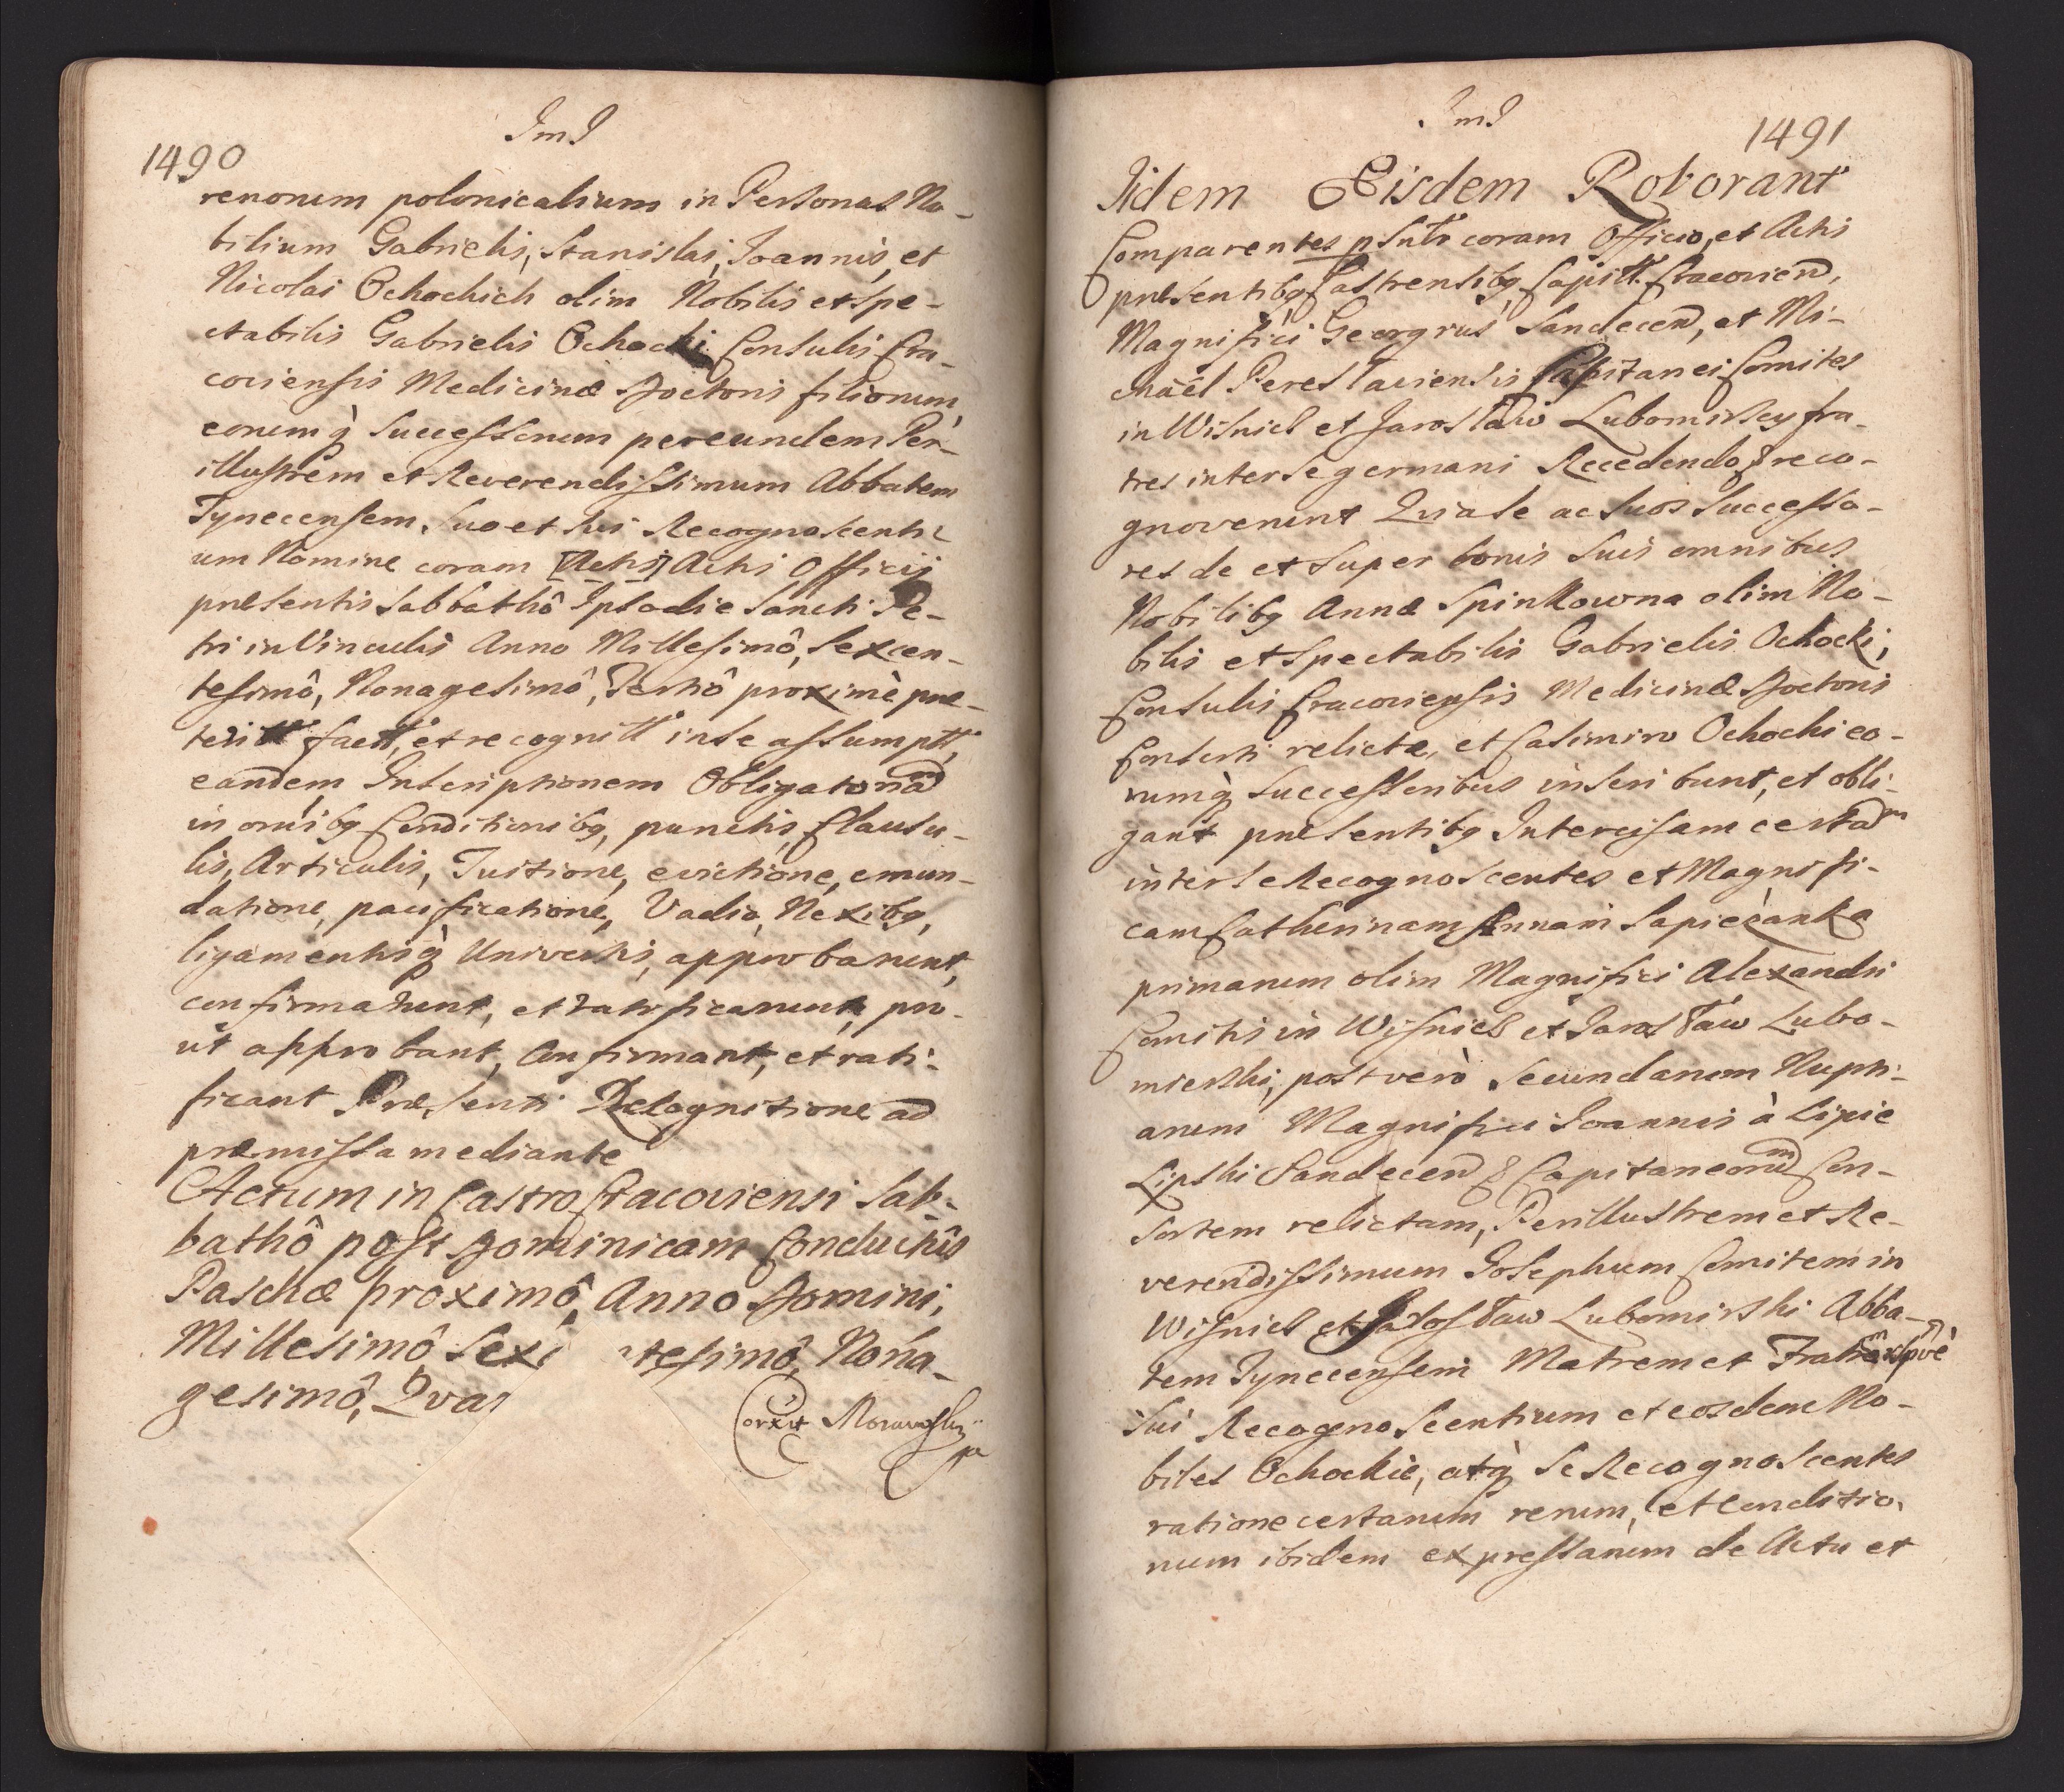 ImI
1490
renorum polonicalium in Personas No-
bilium Gabrielis, Stanislai, Joannis, et
Nicolai Ochockich olim Nobilis et Spe-
ctabilis Gabrielis Ochocki Consulis Cra-
coviensis Medicinæ Doctoris filiorum,
eorumq̀ Successorum per eundem Per-
illustrem et Reverendissimum Abbatem
Tynecensem, Suo et Sui Recognoscenti-
um Nomine coram [Actis] Actis Officij
præsentis Sabbathô Ipso die Sancti Pe-
tri in Vinculis Anno Millesimô, Sexcen-
tesimô, Nonagesimô, Tertiô proximè præ-
teritt fact, et recognitt in se assumptt,
eandem Inscriptionem Obligatoriam
in omĩbg Conditionibg, punctis, Clausu-
lis, Articulis, Tuitione, evictione, emun-
datione, pacificatione, Vadio, Nexibg,
ligamentisq̀ Universis, approbarunt,
confirmarunt, et ratificarunt, pro-
ut approbant, Confirmant, et rati-
ficant Præsenti Recognitione ad
præmissa mediante
Actum in Castro Cracoviensi Sab-
bathô post Dominicam Conductûs
Paschæ proximô, Anno Domini,
Millesimô Sex tesimô, Nona-
gesimô, Qvar
Corxit
ImI
1491
Iidem Eisdem Roborant
Comparentes psnlr coram Officio, et Actis
præsentibg Castrensibg Capitt. Cracovien,
Magnifici Georgius Sandecen, et Mi-
chaël Pereslaviensis Capitanei Comites
in Wisnicz et Jarosław Lubomirscy fra-
tres inter se germani Recedendo recо-
gnoverunt Quia se ac Suos Successo-
res de et super bonis Suis omnibus
Nobilibg Annæ Spinkowna olim No-
bilis et Spectabilis Gabrielis Ochocki,
Consulis Cracoviensis Medicinæ Doctoris
Consorti relictæ, et Casimiro Ochocki eo-
rumq̀ Successoribus inscribunt, et obli-
gant præsentibg Intercisam certam
inter se Recognoscentes et Magnifi-
cam Catherinam Annam Sapiezanka
primarum olim Magnifici Alexandri
Comitis in Wisnicz et Jarosław Lubo-
mierski, post verò Secundarum Nupti-
arum Magnifici Joannis à Lipie
Lipski Sandecen & Capitaneorum Con-
sortem relictam, Perillustrem et Re-
verendissimum Josephum Comitem in
Wisnicz et Jarosław Lubomirski Abba-
tem Tynecensem Matrem et Fratrem
Sui Recognoscentium et eosdem No-
biles Ochockie, atq̀ se Recognoscentes
ratione certarum rerum, et conditio-
num ibidem expressarum de Actu et